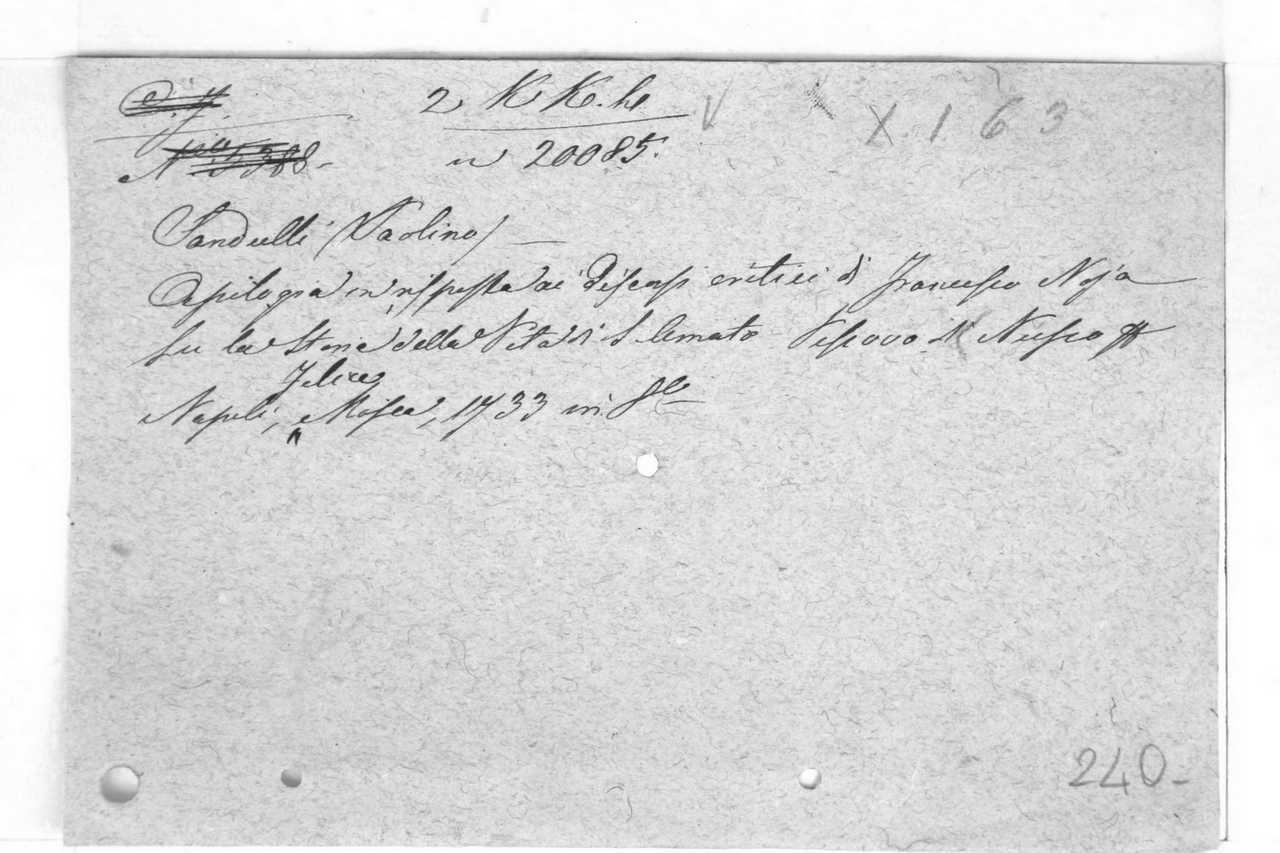 2 KK.h. V X 163
N° 5388 n 20085.
Sandulli (Paolino) —
Apologia in risposta ai Discorsi critici di Francesco Noja
su la Storia della Vita di S. Amato Vescovo di Nusco
Felice
Napoli, Mosca, 1733 in 8°
240-